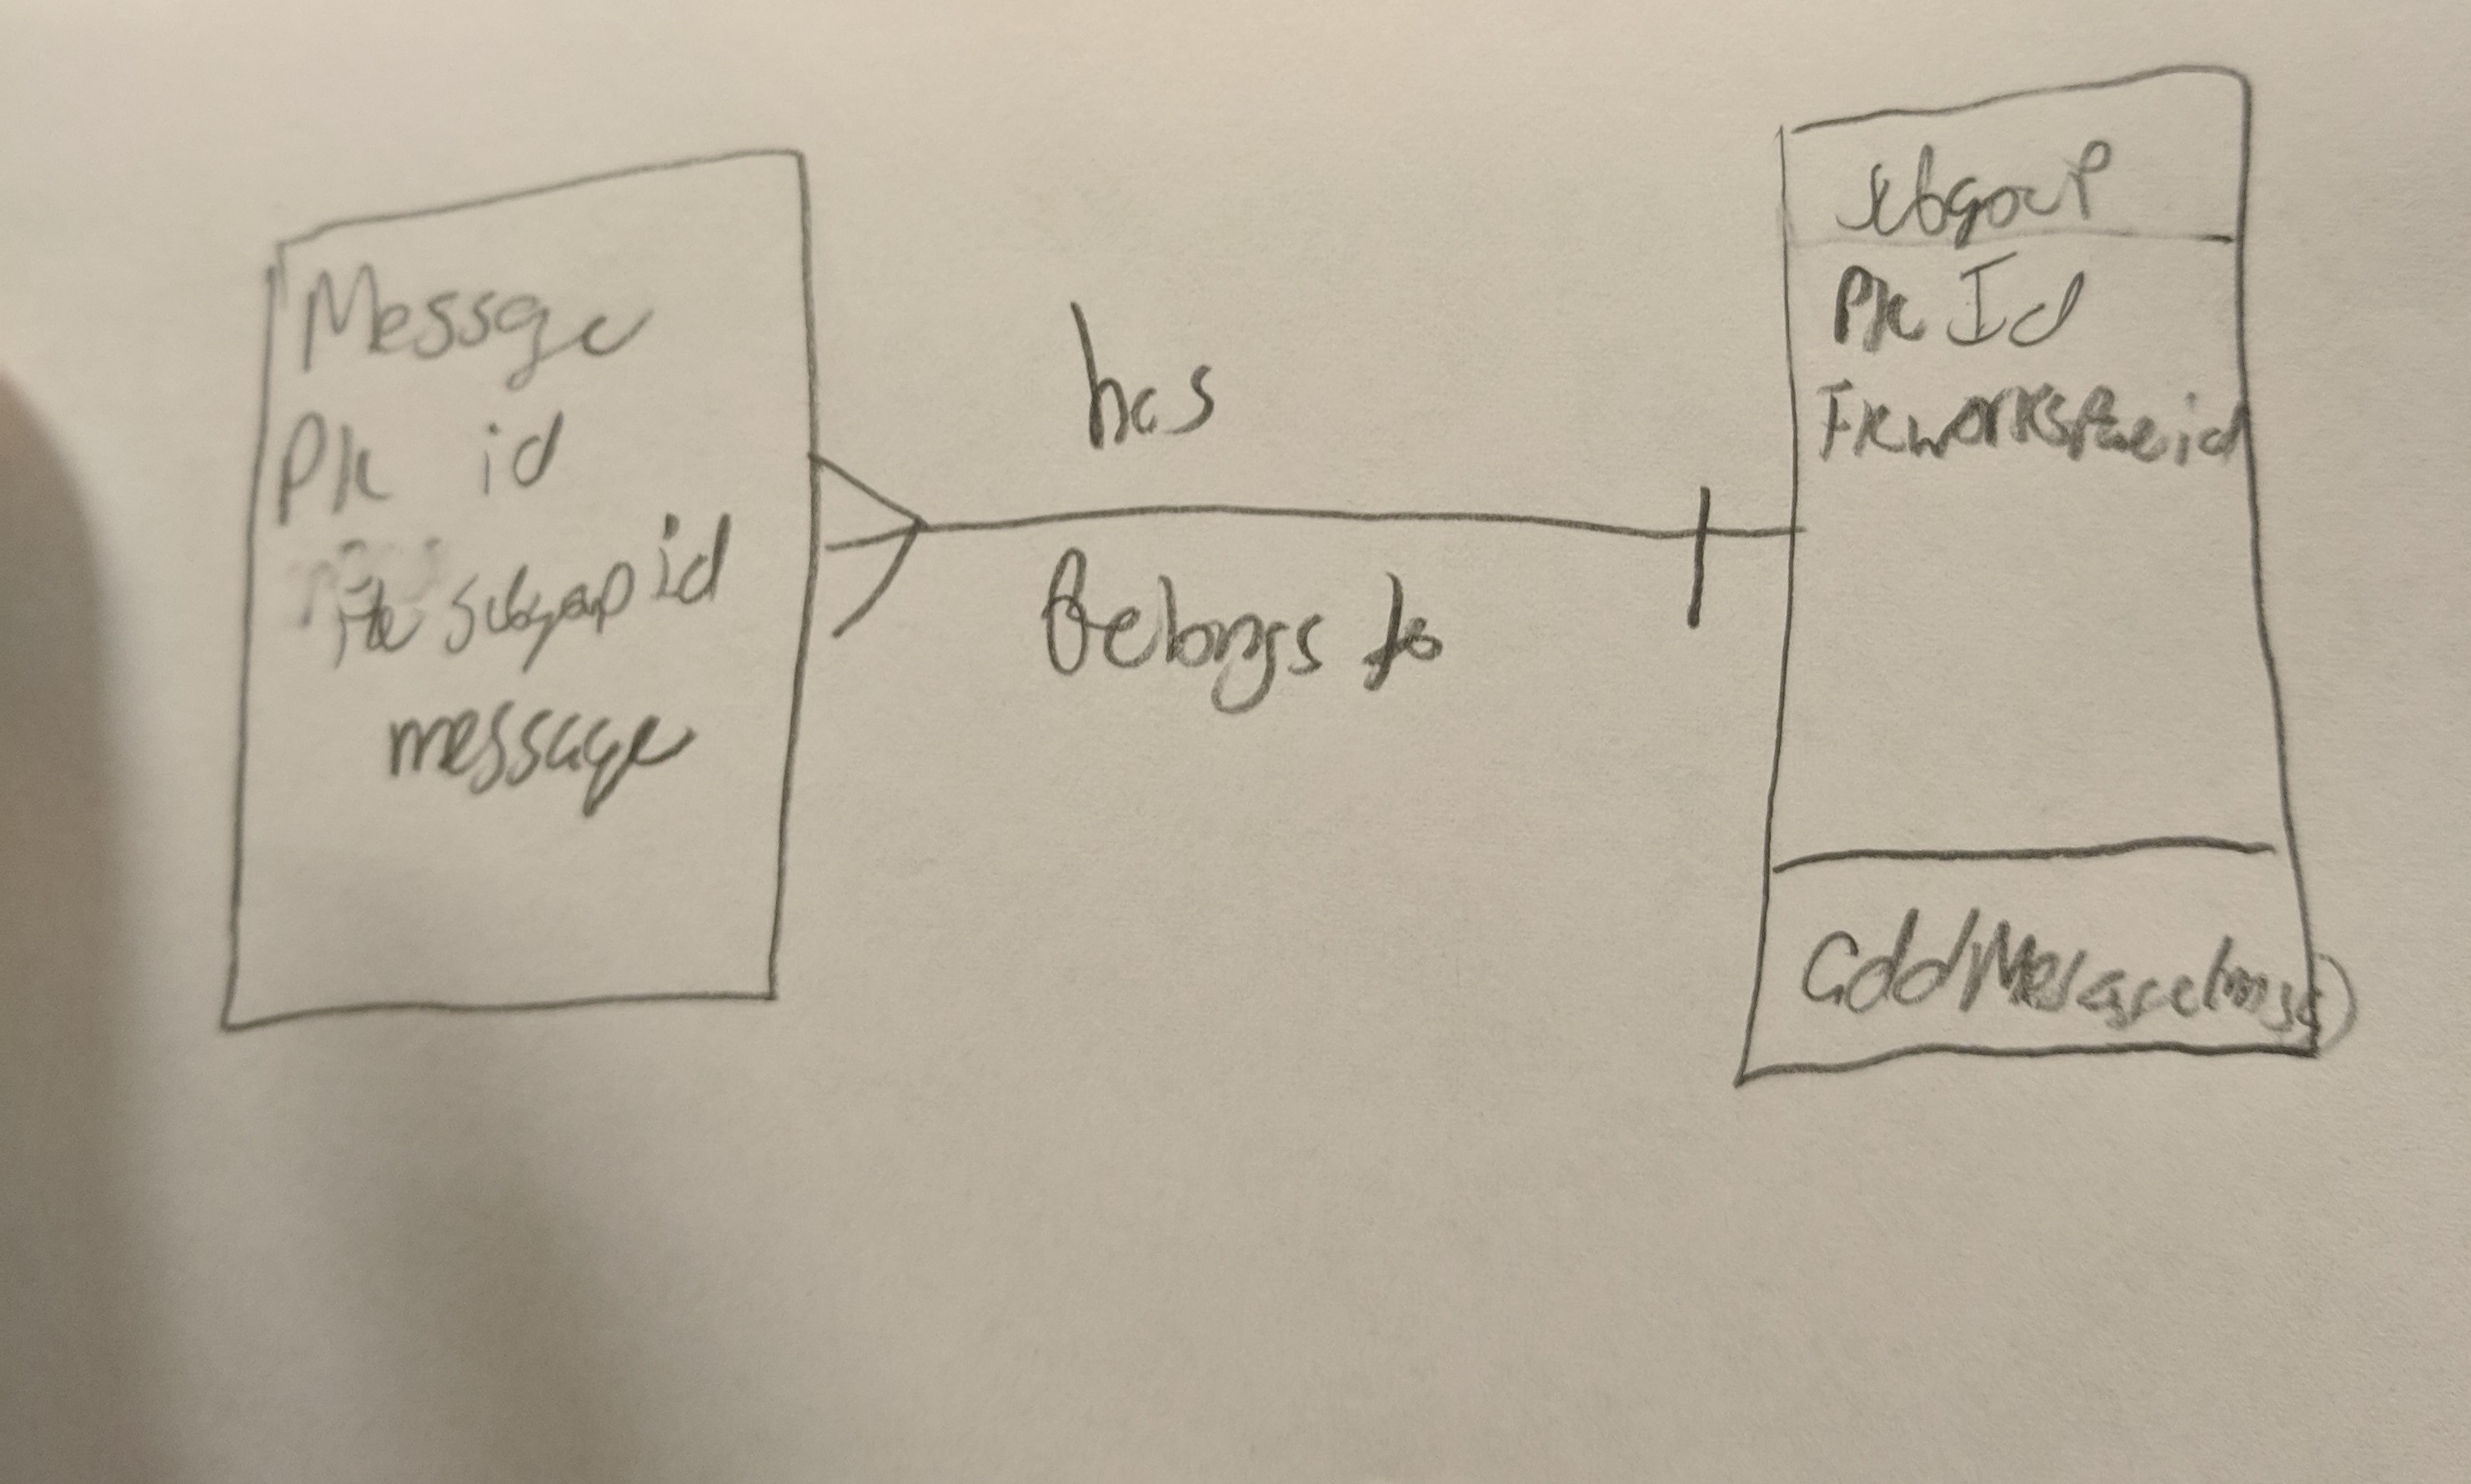 Message
PK id
FK subgroup id
message
has
Belongs to
subgroup
PK Id
FK workspace id
addMessage(msg)